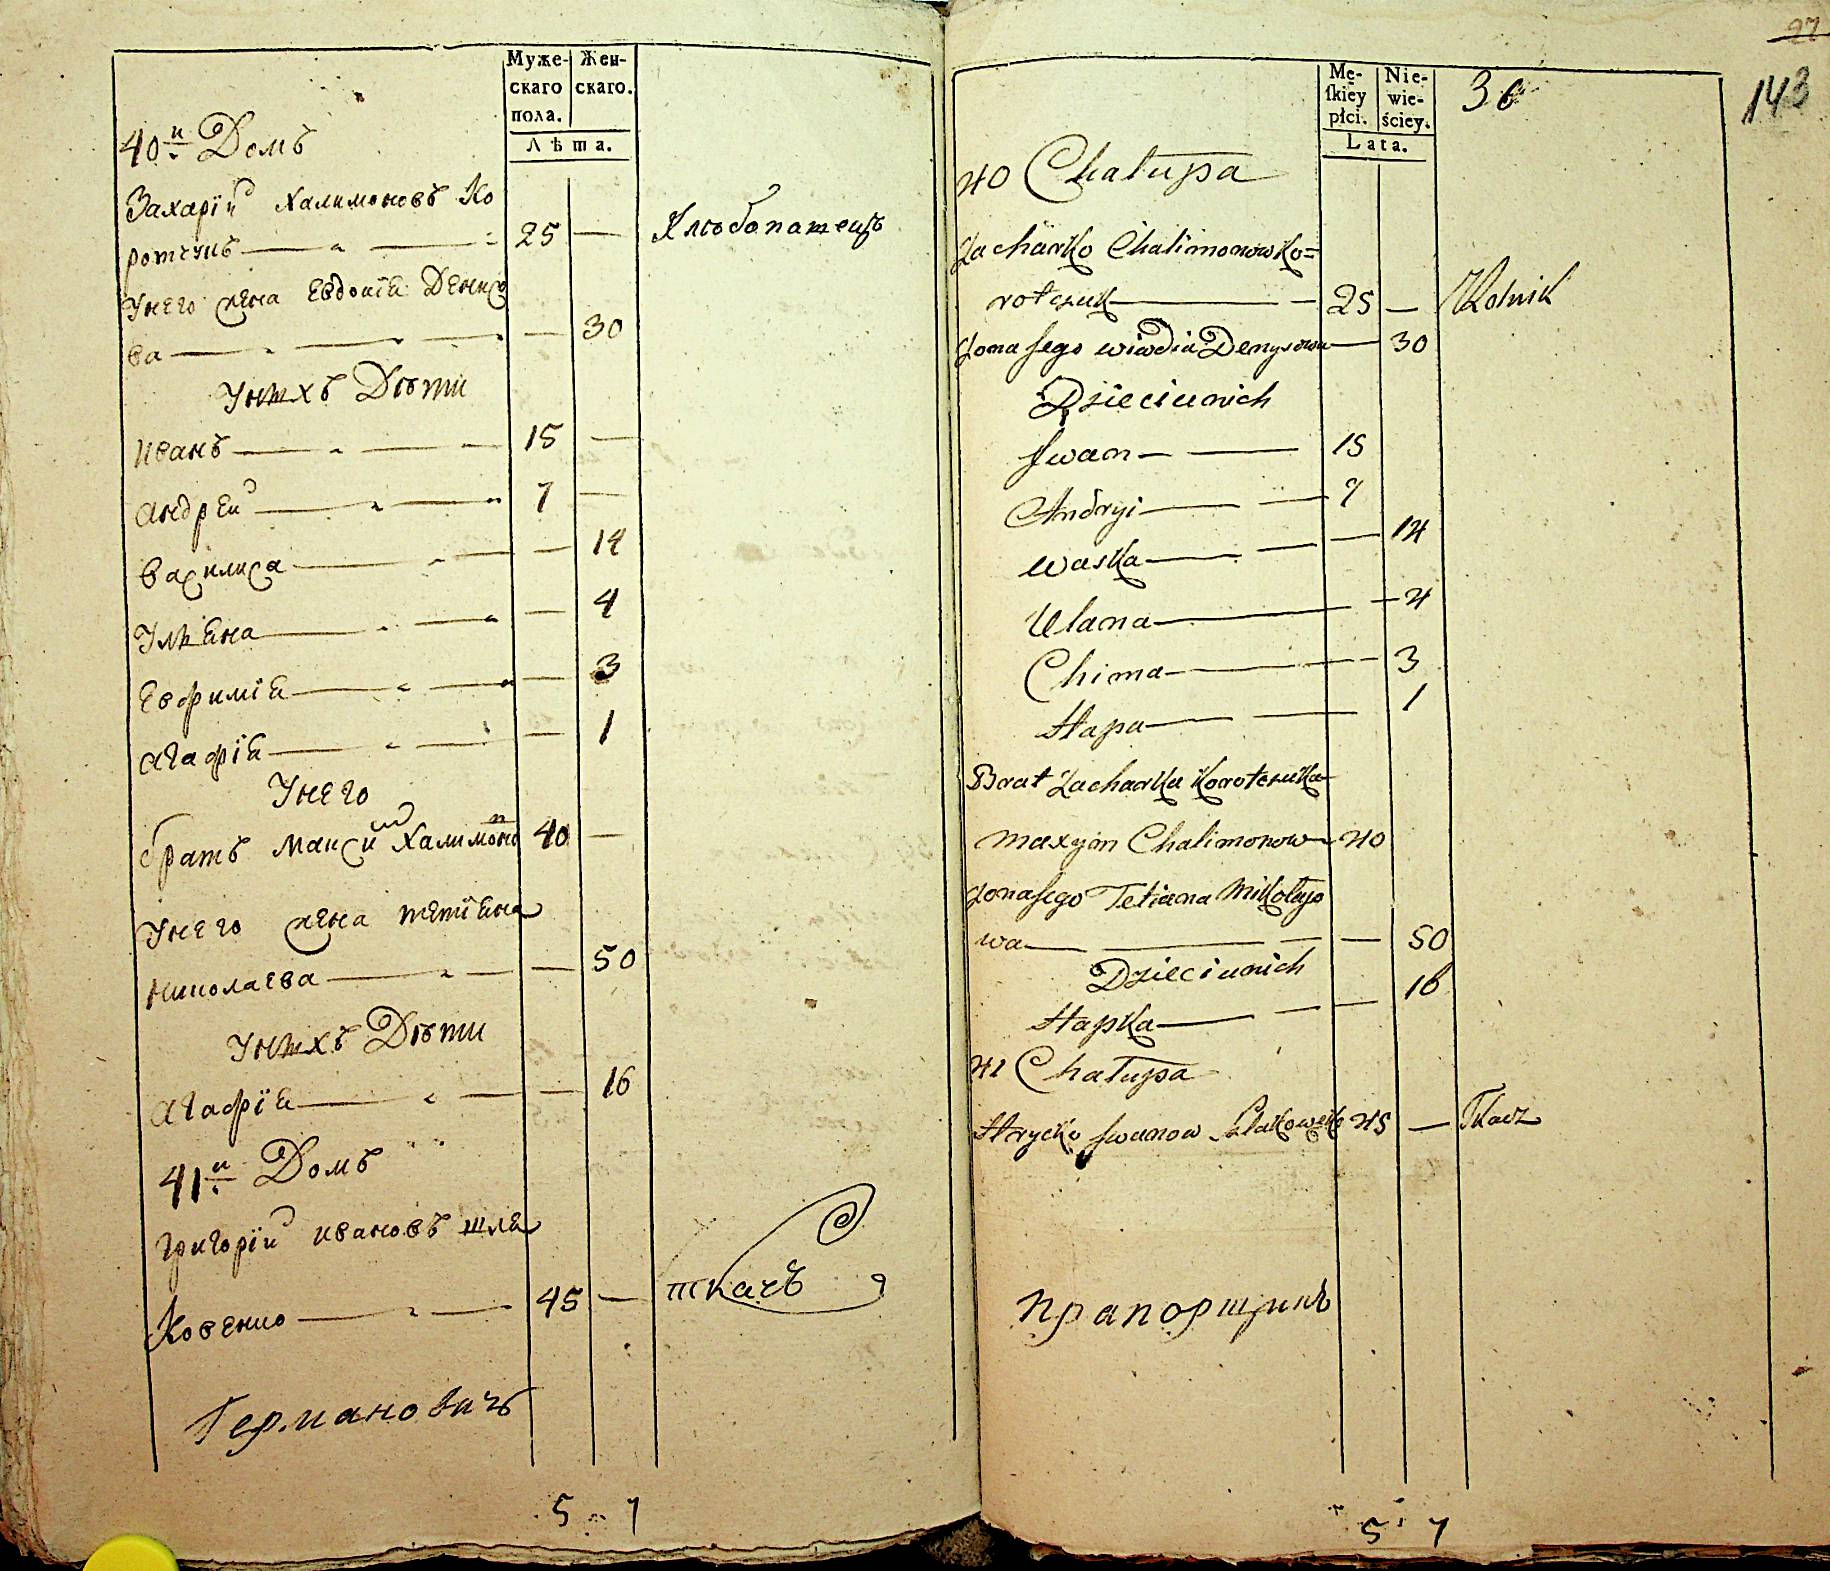 Муже-
скаго
пола.
Жен-
скаго.
Лѣта.
40й Домъ
Захарїй Халимоновъ Ко
ротчукъ 25 — Хлѣбопатецъ
Унего жена Евдокїѧ Денисо
ва — 30
Унихъ Дѣти
Иванъ 15 —
Андрей 7 —
Василиса — 14
Улїѧна — 4
Евфимїѧ — 3
Агафїѧ — 1
Унего
братъ Максим Халимоно 40 —
Унего жена Тетїѧна
Николаева — 50
Унихъ Дѣти
Агафїѧ — 16
41й Домъ
Григорїй Ивановъ Шлѧ
Ковенко 45 — ткачъ
Германовичъ
5 7
27
143
36
Mę-
ſkiey
płci.
Nie-
wie-
ściey.
Lata.
40 Chałupa
Zacharko Chalimonow Ko=
rotczuk 25 — Rolnik
Zona Jego Wiwdia Denysowa — 30
Dzieci u nich
Iwan 15
Andryi 7
Waska — 14
Ulana — 4
Chima — 3
Hapa 1
Brat Zacharka Korotczuka
Maxym Chalimonow 40
Zona Jego Tetiana Mikołajo
wa — 50
Dzieci u nich
Hapka — 16
41 Chałupa
Hrycko Iwanow Szlakowenko 45 — Tkacz
Прапорщикъ
5 7